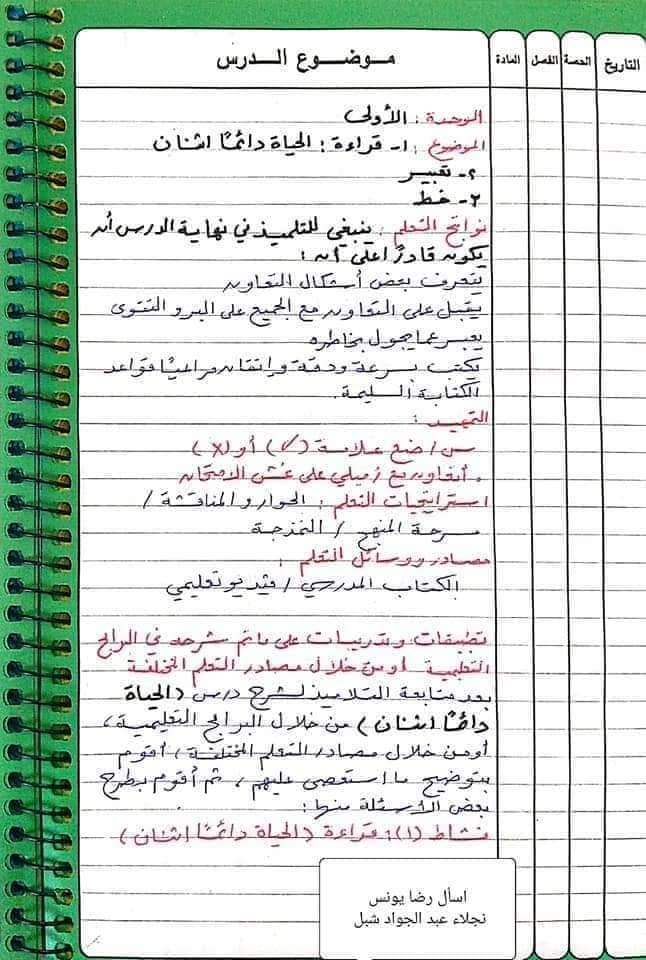 التاريخ الحصة الفصل المادة موضوع الدرس
الوحدة : الأولى
الموضوع : ١- قراءة : الحياة دائمًا اثنان
٢- تعبير
٣- خط
نواتج التعلم : ينبغي للتلميذ في نهاية الدرس أن
يكون قادرًا على أن :
يتعرف بعض أشكال التعاون
يقبل على التعاون مع الجميع على البر و التقوى
يعبر عما يجول بخاطره
يكتب بسرعة ودقة وإتقان مراعيًا قواعد
الكتابة السليمة.
التمهيد :
س/ ضع علامة (✓) أو (X)
• أتعاون مع زميلي على غش الامتحان
استراتيجيات التعلم : الحوار و المناقشة /
مسرحة المنهج / النمذجة
مصادر ووسائل التعلم :
الكتاب المدرسي / فيديو تعليمي
تطبيقات وتدريبات على ما تم شرحه في البرامج
التعليمية أو من خلال مصادر التعلم المختلفة
بعد متابعة التلاميذ لشرح درس (الحياة
دائمًا اثنان) من خلال البرامج التعليمية ،
أو من خلال مصادر التعلم المختلفة ، أقوم
بتوضيح ما استعصى عليهم ، ثم أقوم بطرح
بعض الأسئلة منها :
نشاط (١) : قراءة (الحياة دائمًا اثنان)
اسأل رضا يونس
نجلاء عبد الجواد شبل